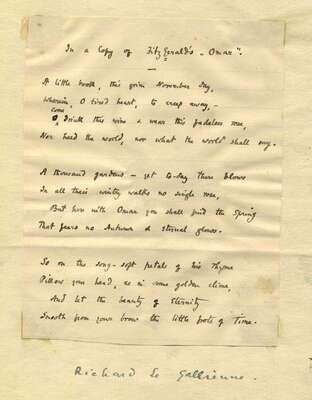 In a Copy of FitzGerald's "Omar".
A little book, this grim November day,
Wherein, O tired heart, to creep away, –
Come
O, drink this wine & wear this fadeless rose,
Nor heed the world, nor what the world shall say.
A thousand gardens – yet to-day there blows
In all their wintry walks no single rose,
But here with Omar you shall find the Spring
That fears no Autumn & eternal glows.
So on the song-soft petals of his rhyme
Pillow your head, as in some golden clime,
And let the beauty of Eternity
Smooth from your brow the little frets of Time.
Richard Le Gallienne.